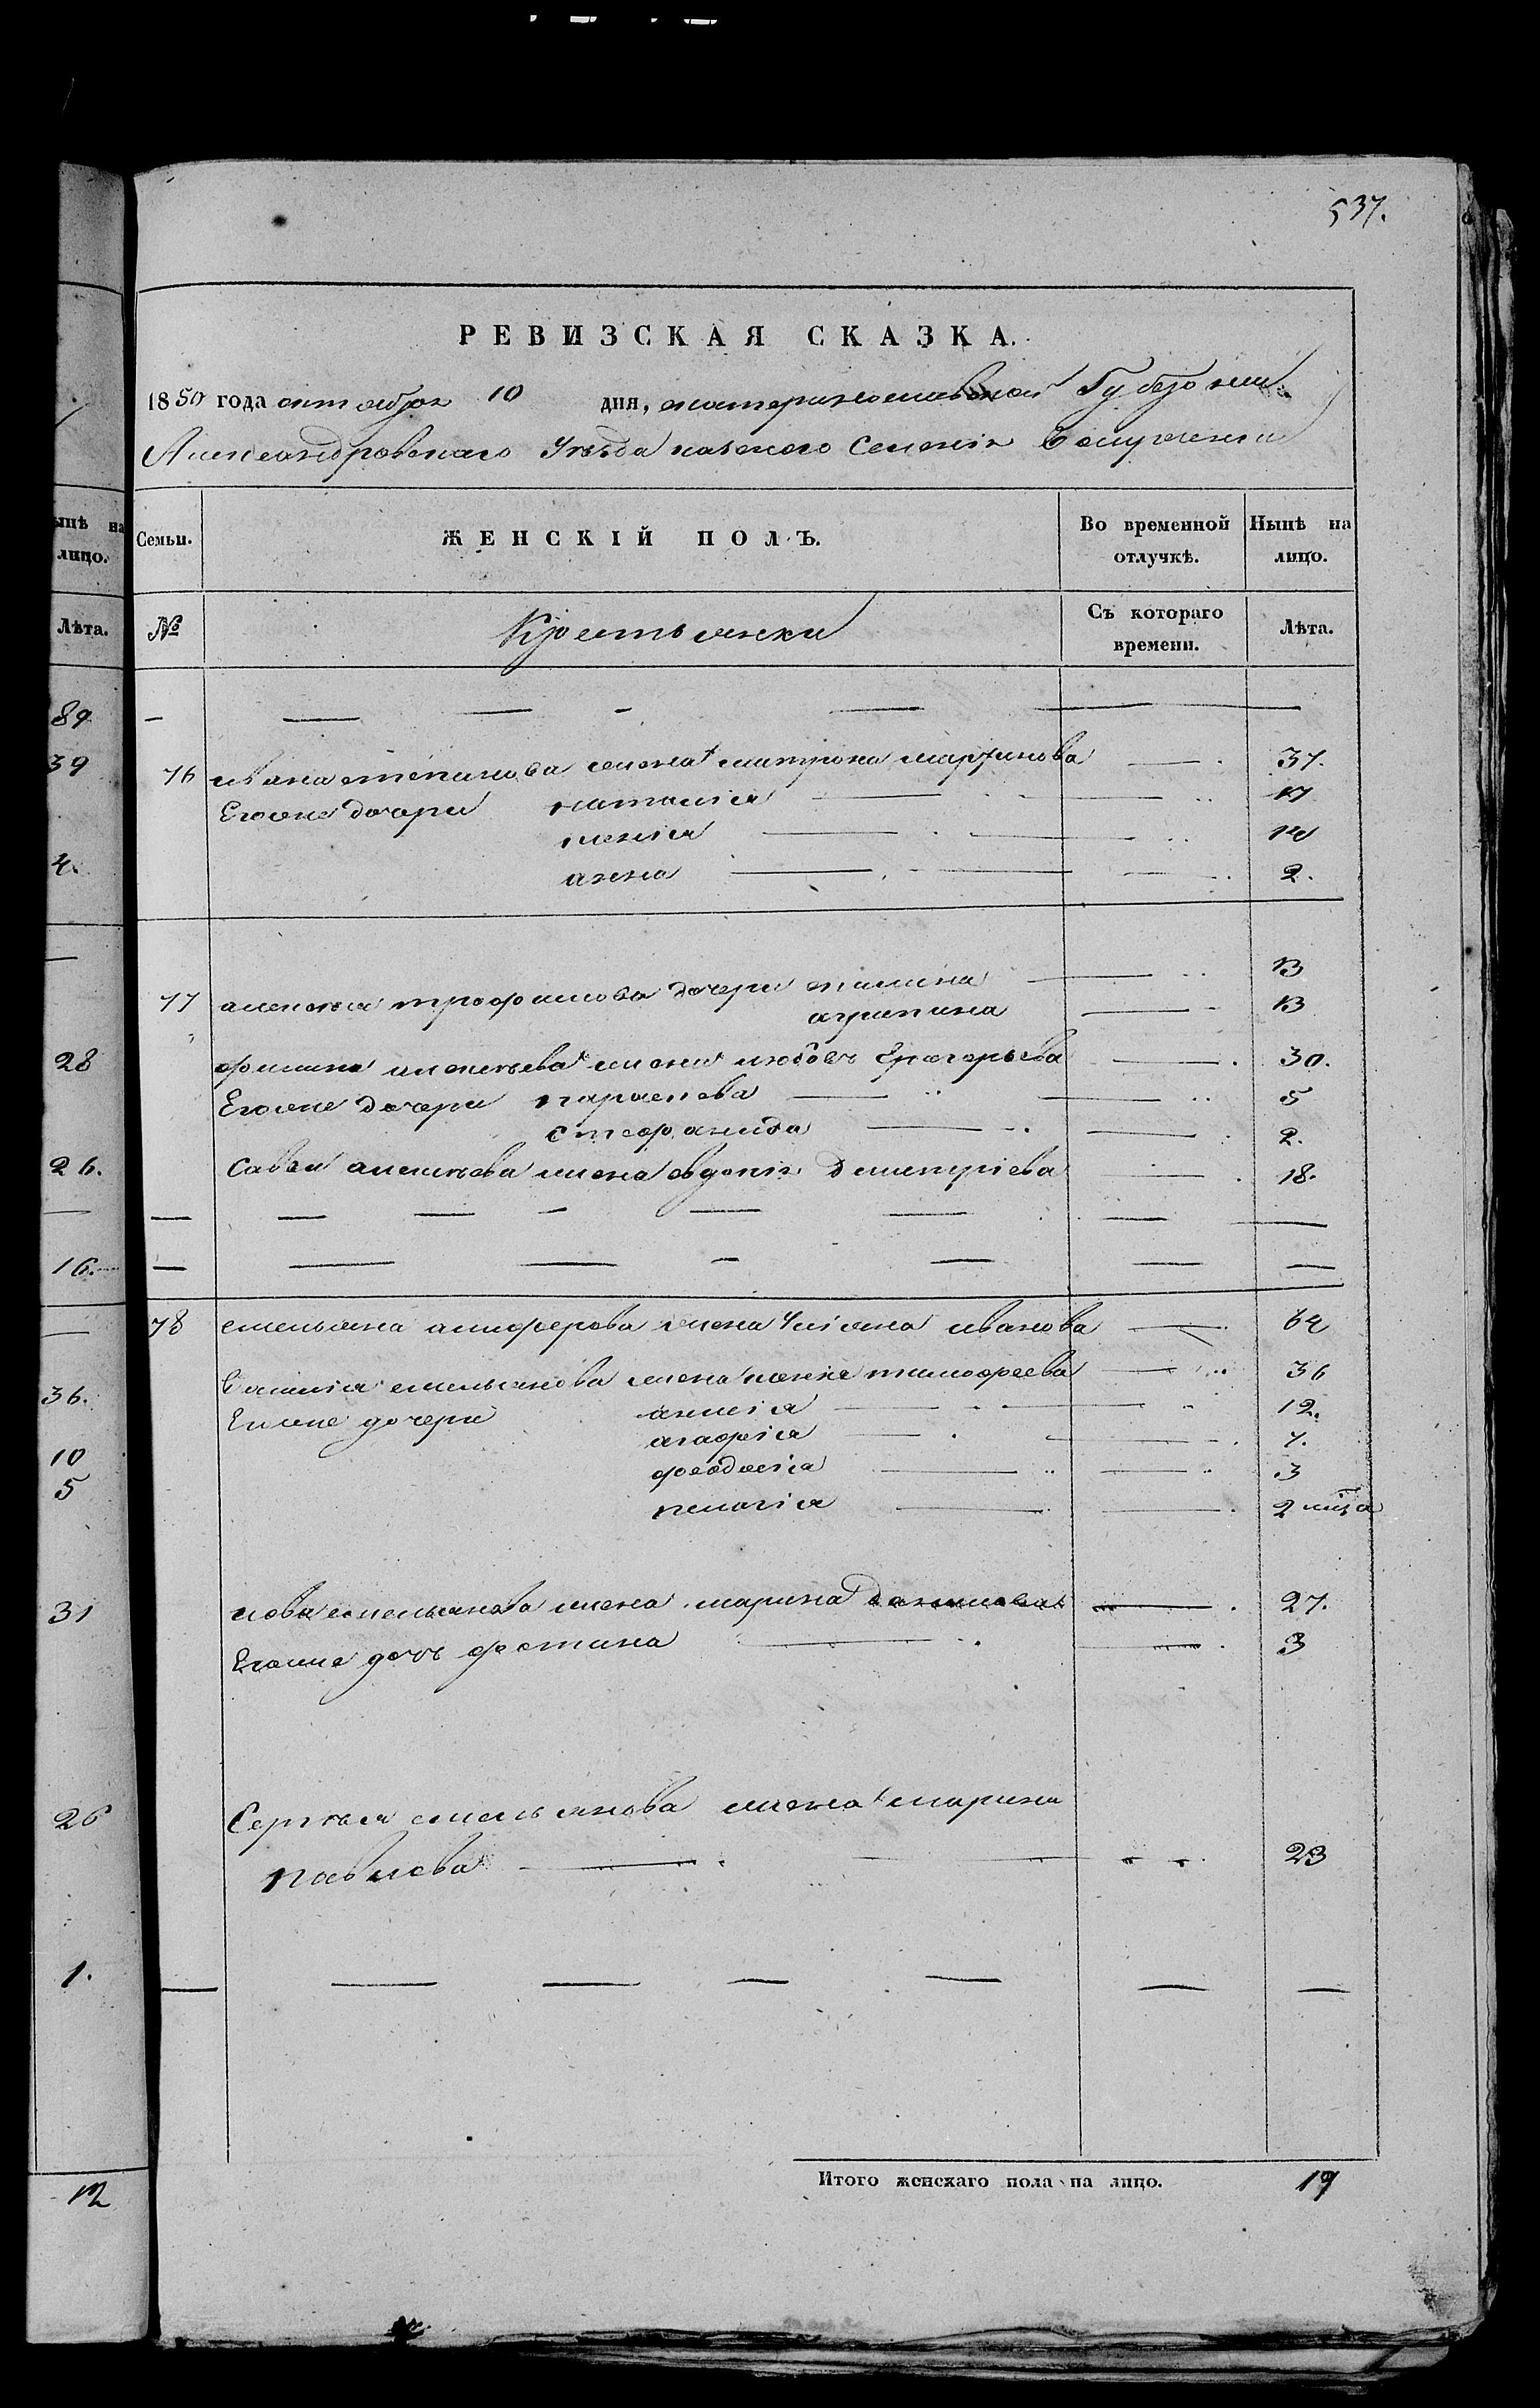 537.
РЕВИЗСКАЯ СКАЗКА.
1850 года октября 10 дня, екатеринославской Губернии
Александровскаго Уезда казенного Селения
Семьи. ЖЕНСКІЙ ПОЛЪ. Во временной отлучкѣ. Нынѣ на лицо.
№ Крестьянки Съ котораго времени. Лѣта.
76 ивана степанова жена матрона мартинова 37.
Егоже дочери наталия 17
ксения 14
анна 2.
77 алексея трофимова дочери акилина 13
агрипина 13
фомина алексѣева жена любовь Григорьева 30.
Егоже дочери параскева 5
стефанида 2.
Савы алексѣева жена евдокия Дмитріева 18.
78 емельяна алиферова жена Улияна иванова 64
Василия емельянова жена ксения тимофеева 36
Егоже дочери анисия 12.
агафия 7.
феодосия 3
пелагия 2 мца
иова емельянова жена марина Данилова 27.
Егоже дочь фотина 3
Сергѣя емельянова жена марина
павлова 23
Итого женскаго пола на лицо. 19
ынѣ на
лицо.
Лѣта.
89
39
4.
28
26.
16.
36.
10
5
31
26
1.